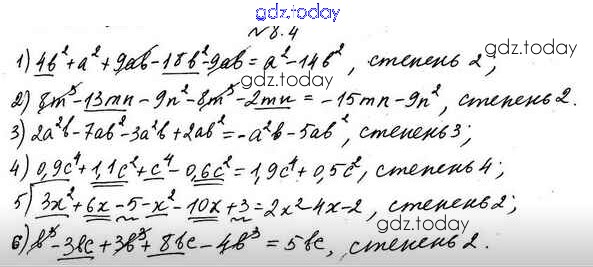 gdz.today
№8.4
1) 4b² + a² + 9ab - 18b² - 9ab = a² - 14b², степень 2;
gdz.today
gdz.today
2) 8m³ - 13mn - 9n² - 8m³ - 2mn = -15mn - 9n², степень 2.
3) 2a²b - 7ab² - 3a²b + 2ab² = -a²b - 5ab², степень 3;
4) 0,9c⁴ + 1,1c² + c⁴ - 0,6c² = 1,9c⁴ + 0,5c², степень 4;
5) 3x² + 6x - 5 - x² - 10x + 3 = 2x² - 4x - 2, степень 2;
gdz.today
6) b³ - 3bc + 3b³ + 8bc - 4b³ = 5bc, степень 2.
gdz.today